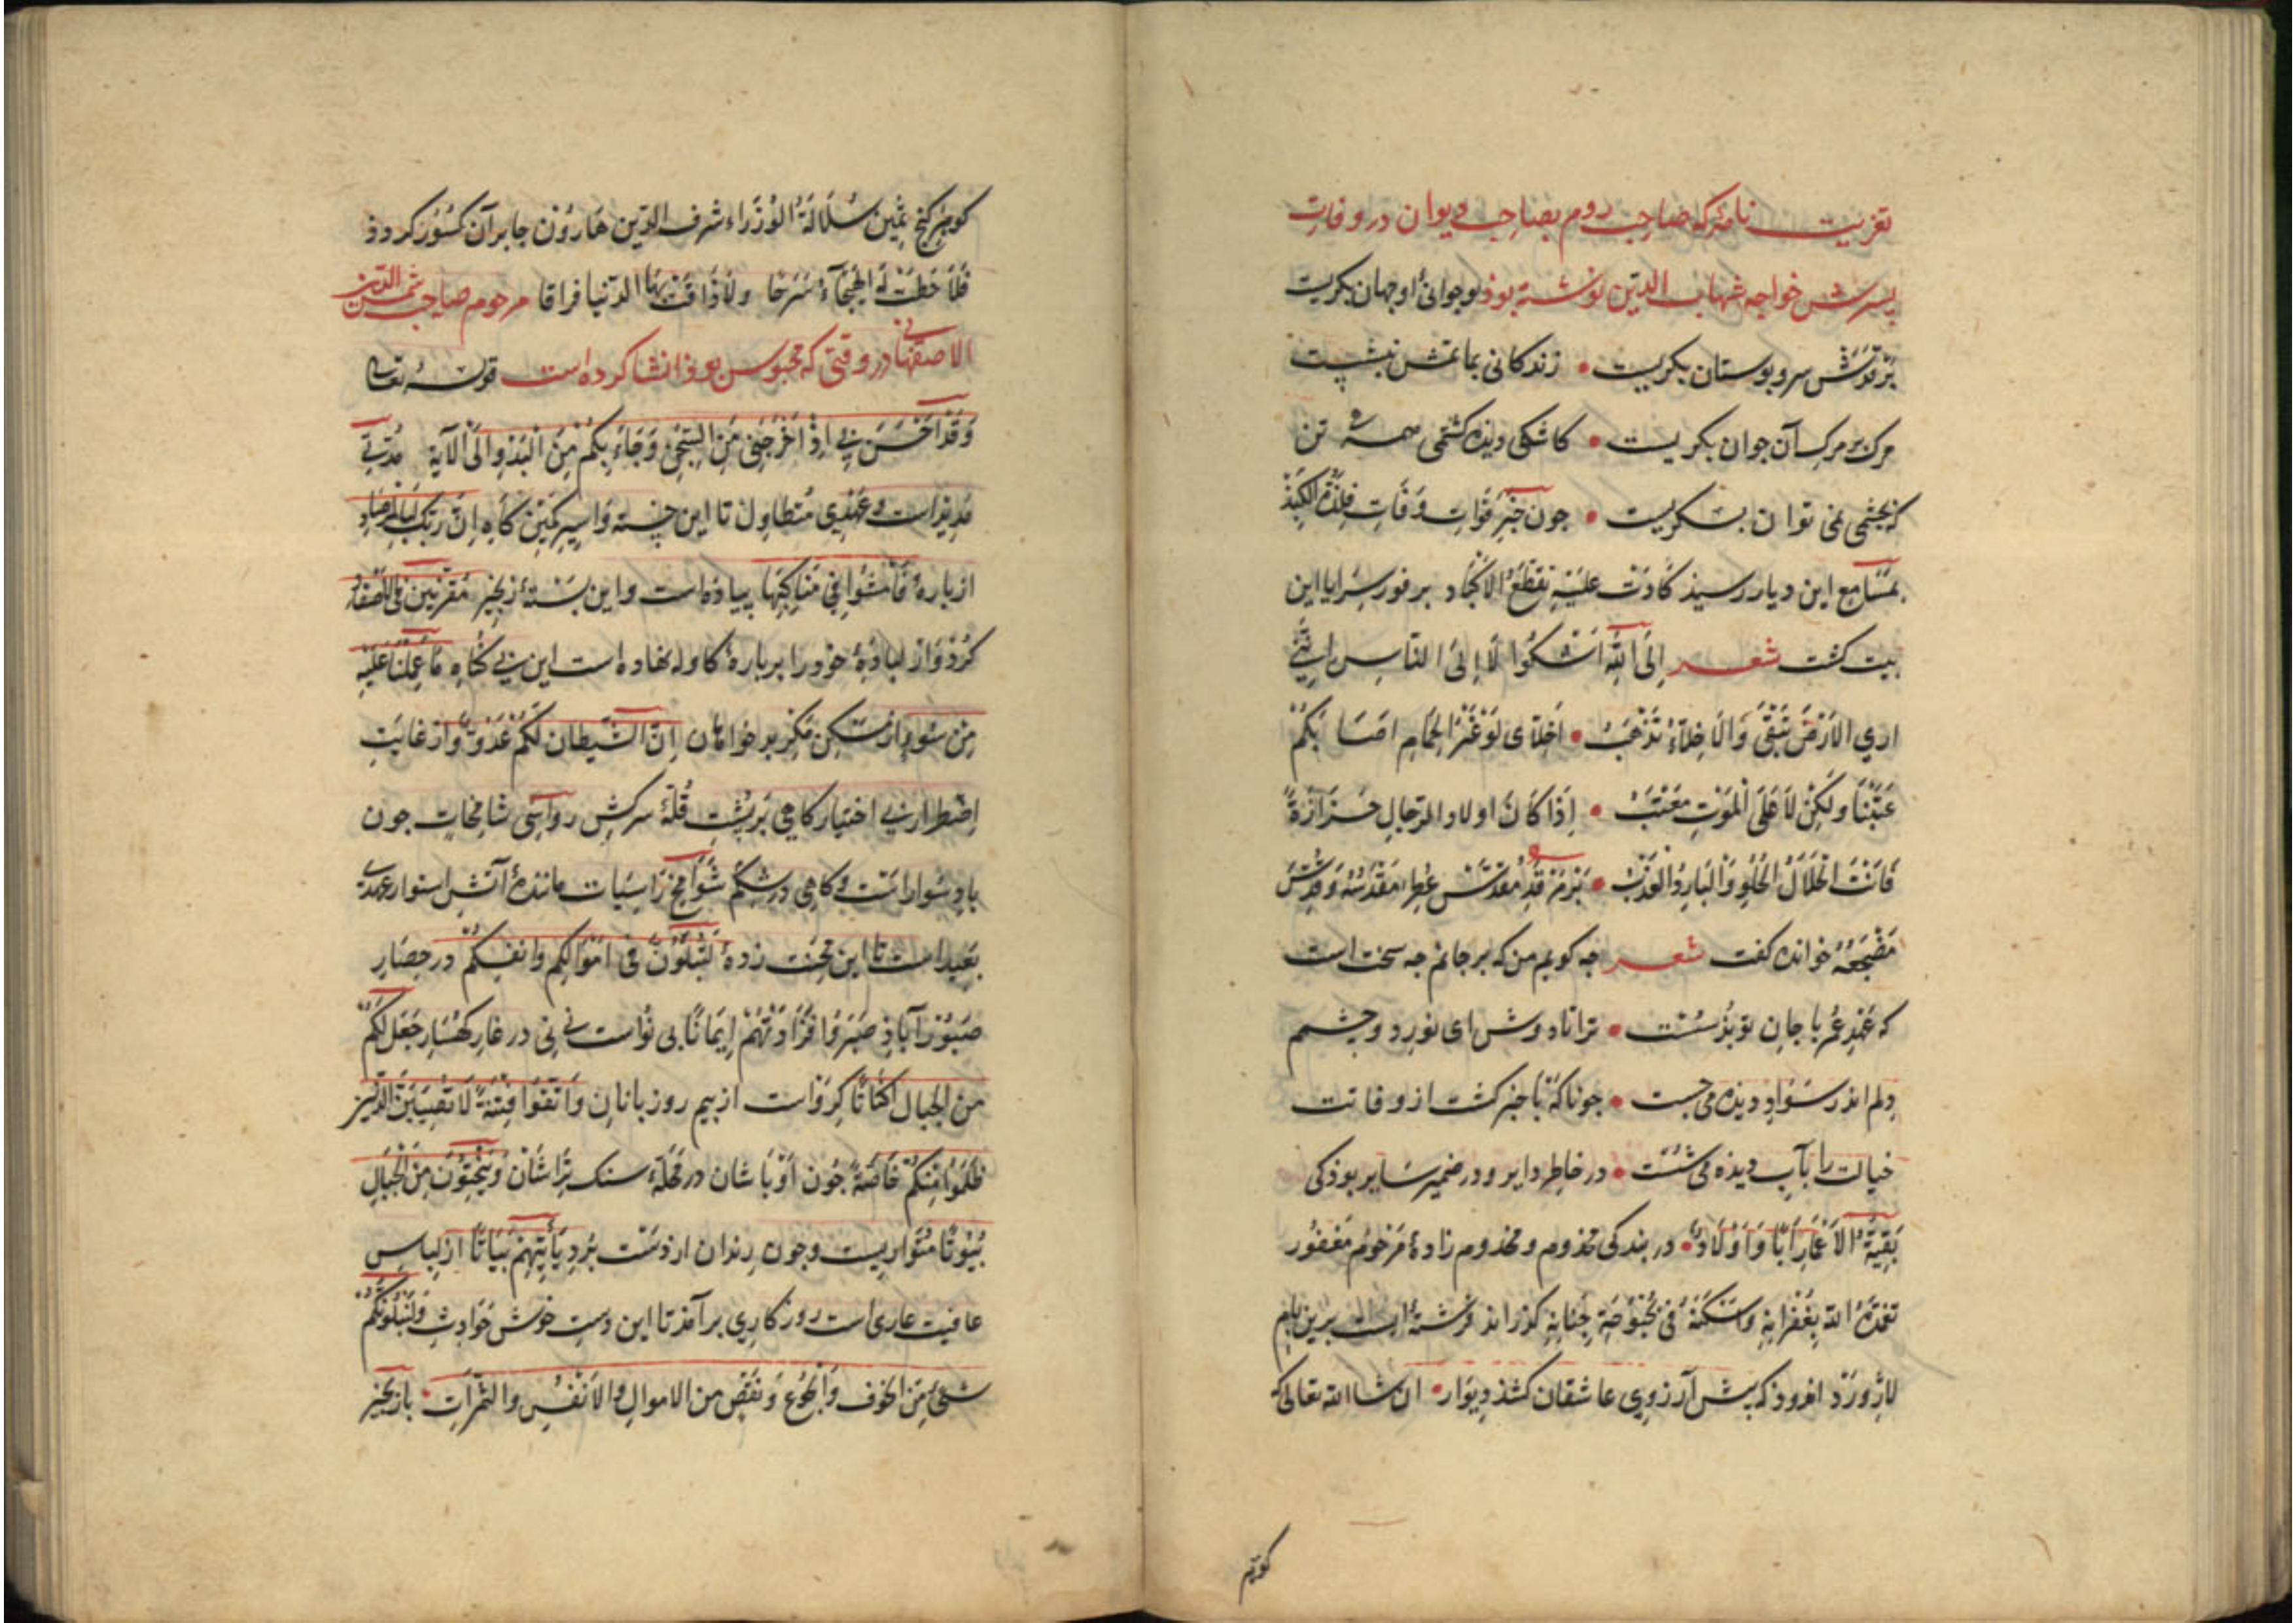 تعزیت نامه که صاحب روم بصاحب دیوان در وفات
پسرش خواجه شهاب الدین نوشته بوذ لوجوانی او جهان بکریست
بر قدش سرو بوستان بکریست • زندکانی بماتمش بنشست
مرک بر مرک آن جوان بکریست • کاشکی دیده کشتمی همه تن
که بچشمی نمی توان بکریست • جون خبر فوات وفات فلذة الکبذ
بمسامع این دیار رسیذ کادت علیه تقطع الاکباد بر فور سرایا این
بیت کشت شعر إلی الله أشکوا لا إلی الناس إننی
اری الارض تبقی والاخلاء تذهب • أخلای لو غیر الحمام اصابکم
عتبنا ولکن لا علی الموت معتب • إذا کان اولاد الرجال حزازة
فانت الحلال الحلو والبارد العذب • بر مرقد مقدس عطر مقدسه وقدس
مضجعه خوانده کفت شعر جه کویم من که بر جانم جه سخت است
که عهد عمر با جان تو بذ سست • ترا تا دوش ای نور دو چشم
دلم اندر سواد دیده می جست • جو ناکه با خبر کشت از وفاتت
خیالت را بآب دیذه می شست • در خاطر دایر و در ضمیر سایر بوذ کی
بقیة الاعمار أبا وأولاد • در بندکی مخذوم و مخذوم زادهٔ مرحوم مغفور
تغمده الله بغفرانه وأسکنه فی بحبوحة جنانه کذراند فرشته ایست برین بام
لاژورد اندوذ که پیش آرزوی عاشقان کشذ دیوار • ان شا الله تعالی که
کوهر
کوهر کنج ثمین سلالة الوزراء شرف الدین هارون جابر آن کسور کردذ
فلا حطت له الهیجاء سرحا ولا ذاقت بها الدنیا فراقا مرحوم صاحب شمس الدین
الاصفهانی در وقتی که محبوس بوذ انشا کرده است قوله تعالی
وقد أحسن بی إذ أخرجنی من السجن وجاء بکم من البدو الی الآیة مدتی
مدیذ است و عهدی متطاول تا این خسته و اسیر کمین کاه إن ربک لبالمرصاد
از بارهٔ فامشوا فی مناکبها پیاده است و این بستهٔ زنجیر مقرنین فی الاصفاد
کرد و از لبادهٔ خود را بر بارهٔ کاوله نهاده است این بی کناه ما علمنا علیه
من سوء از مسکن مکر بدخواهان إن الشیطان لکم عدو و از غایت
إضطرار بی اختیار کاهی بر پشت قلهٔ سرکش رواسی شامخات جون
باد سوار است و کاهی در شکم شوامخ راسیات مانندهٔ آتش استوار عهدی
بعید است تا این محنت زدهٔ لتبلون فی اموالکم وانفسکم در حصار
صبور آباذ صبروا فزادتهم إیمانا بی نواست نی نی در غار کهسار جعل لکم
من الجبال أکنانا کرو است از بیم روزبانان واتقوا فتنة لا تصیبن الذین
ظلموا منکم خاصة جون أوباشان در محلهٔ سنک تراشان وینحتون من الجبال
بیوتا متواریست و جون رندان از دست برد یأتیهم بیاتا از لباس
عافیت عاری است روزکاری بر آمذ تا این دست خوش حوادث ولنبلونکم
بشیء من الخوف والجوع ونقص من الاموال والانفس والثمرات • باز بجیز